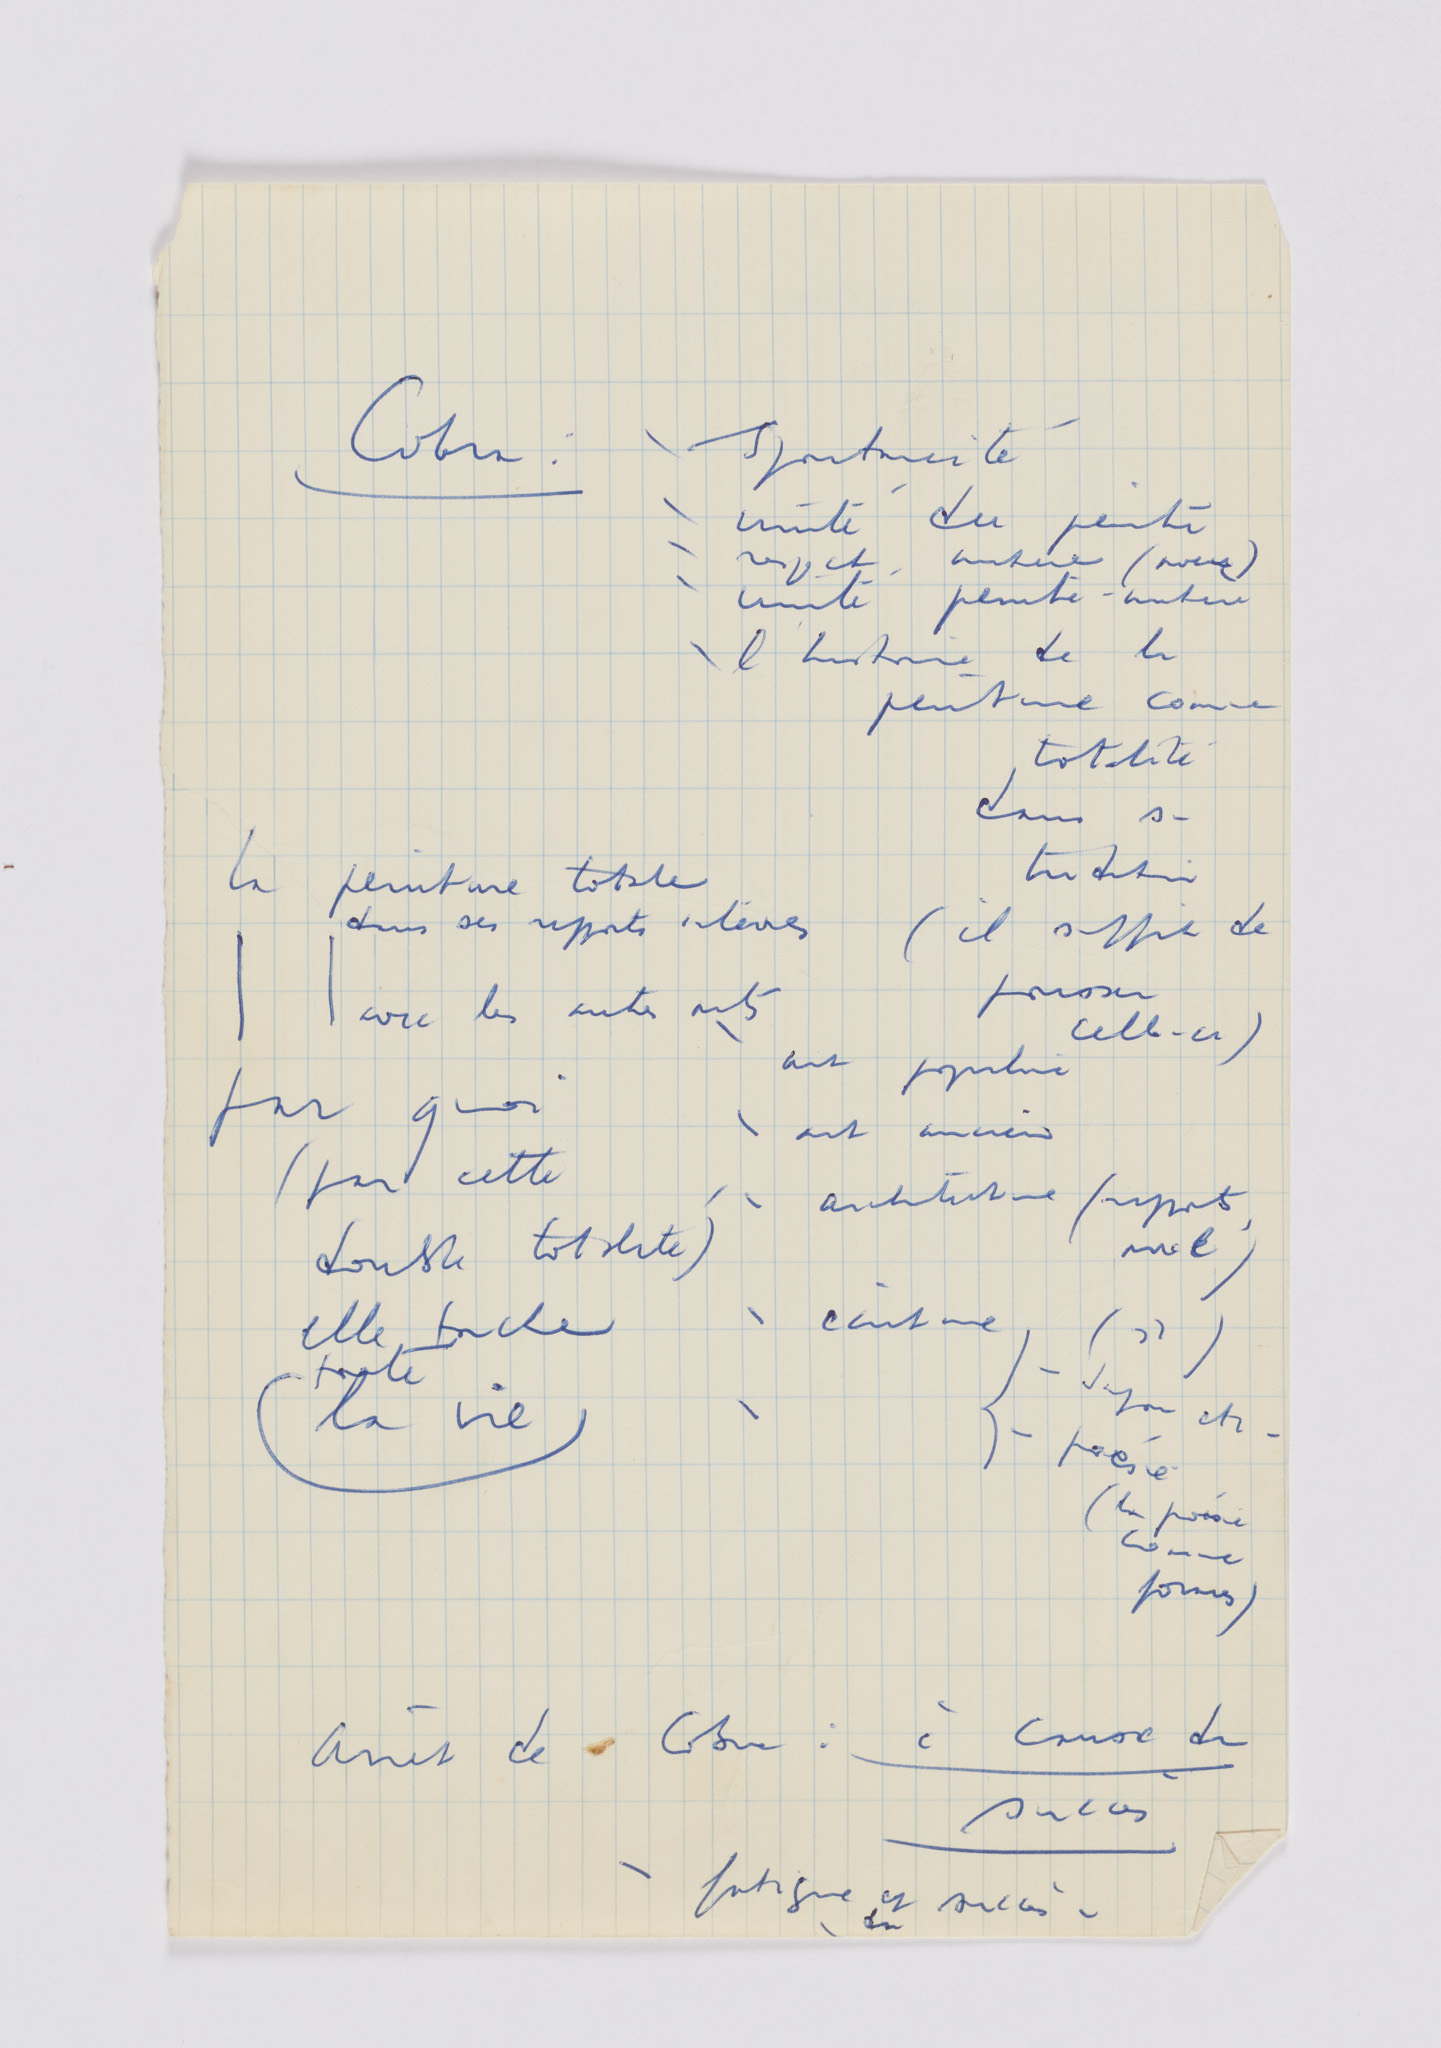 Cobra : \ Spontanéité
\ unité du peintre
\ respect matière
\ unité peintre-matière
\ l'histoire de la
peinture comme
totalité
dans sa
tradition
(il suffit de
pousser
celle-ci)
La peinture totale
dans ses rapports internes
avec les autres arts
\ art populaire
\ art ancien
\ architecture (rapports
\ écriture
- poésie
(la poésie
comme
formes)
par quoi
(par cette
double totalité)
elle touche
toute
la vie
Arrêt de Cobra : à cause du
succès
\ fatigue et succès -
du